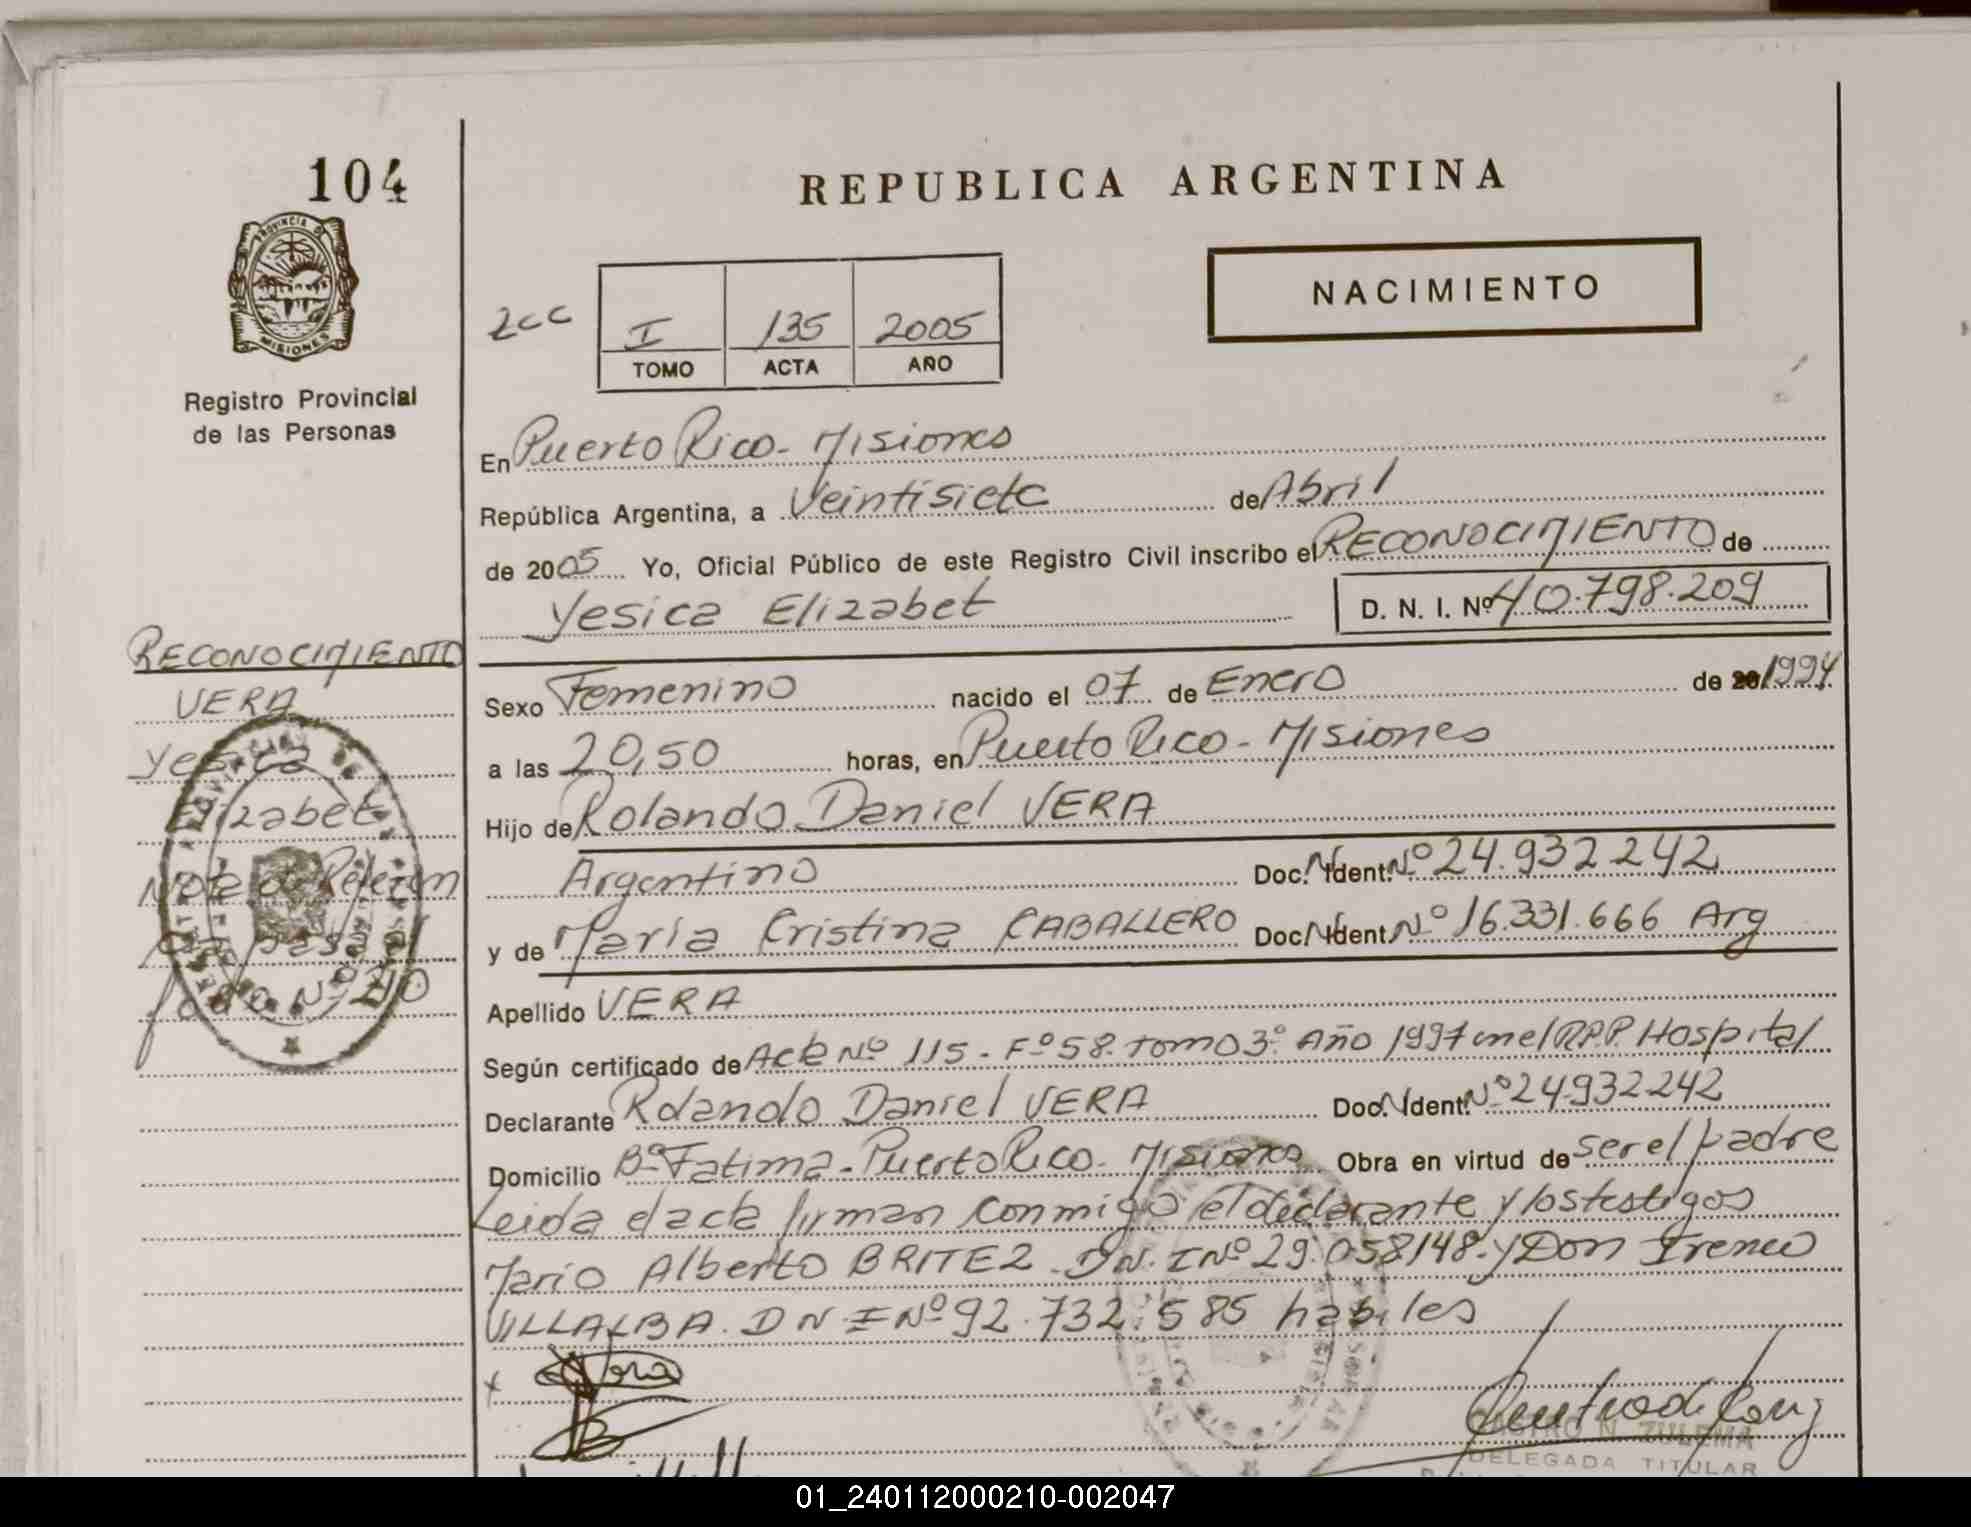 104
PROVINCIA DE
MISIONES
Registro Provincial
de las Personas
REPUBLICA ARGENTINA
NACIMIENTO
2cc
I 135 2005
TOMO ACTA AÑO
En Puerto Rico - Misiones
República Argentina, a Veintisiete de Abril
de 2005 Yo, Oficial Público de este Registro Civil inscribo el RECONOCIMIENTO de
Yesica Elizabet D. N. I. Nº 40.798.209
Sexo Femenino nacido el 07 de Enero de 20/1994
a las 20,50 horas, en Puerto Rico - Misiones
Hijo de Rolando Daniel VERA
Argentino Doc. Ident. Nº 24.932242
y de María Cristina CABALLERO Doc. Ident. Nº 16.331.666 Arg
Apellido VERA
Según certificado de Acta Nº 115 - Fº 58. Tomo 3º. Año 1997 en el R.P.P. Hospital
Declarante Rolando Daniel VERA Doc. Ident. Nº 24.932242
Domicilio Bº Fatima - Puerto Rico - Misiones Obra en virtud de ser el padre
Leida el acta firman conmigo el declarante y los testigos
Mario Alberto BRITEZ D.N.I Nº 29.058148. y Don Ireneo
VILLALBA. DNI Nº 92.732.585 habiles
x
CASTRO N. ZULEMA
DELEGADA TITULAR
RECONOCIMIENTO
VERA
Yesica
Elizabet
Nota de
Nº 210
01_240112000210-002047